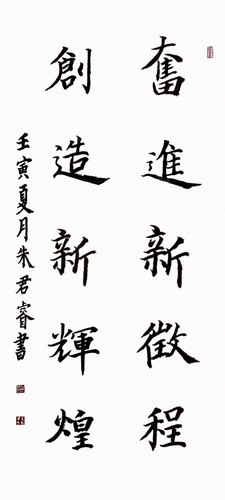 奮進新徵程
創造新輝煌
壬寅夏月朱君睿書